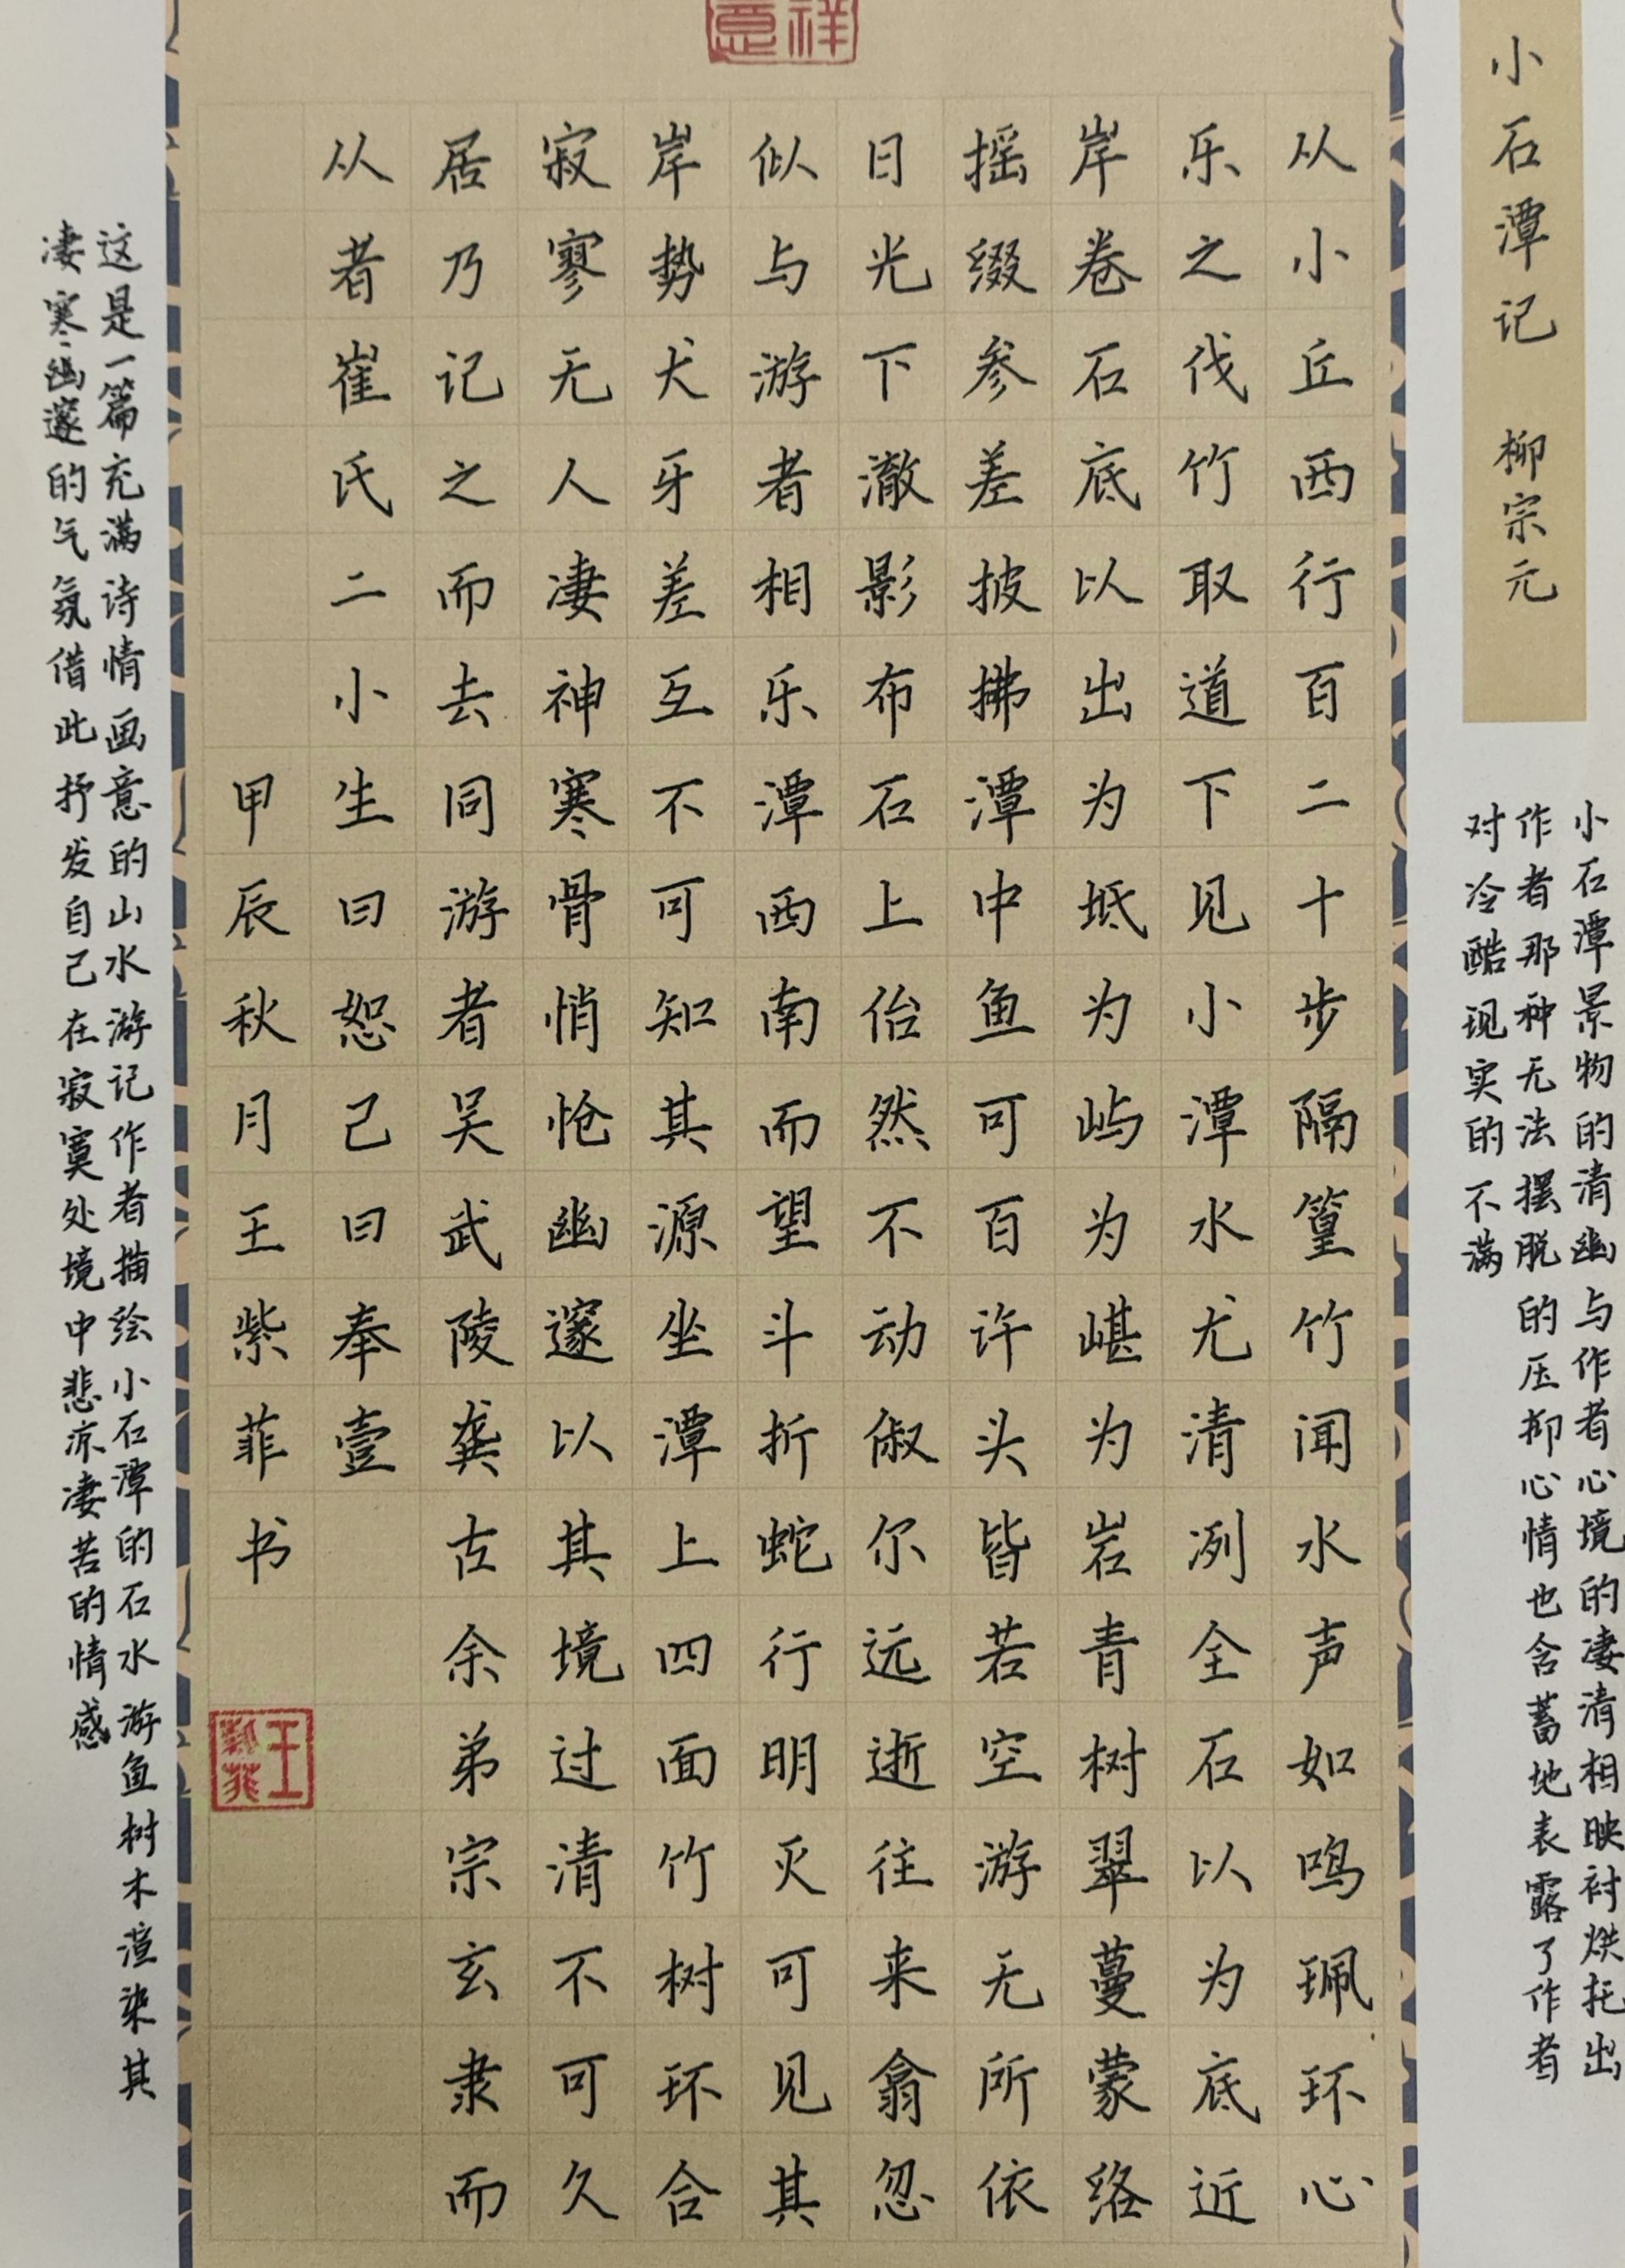 祥意
小石潭记 柳宗元
小石潭景物的清幽与作者心境的凄清相映衬烘托出
作者那种无法摆脱的压抑心情也含蓄地表露了作者
对冷酷现实的不满
从小丘西行百二十步隔篁竹闻水声如鸣珮环心
乐之伐竹取道下见小潭水尤清冽全石以为底近
岸卷石底以出为坻为屿为嵁为岩青树翠蔓蒙络
摇缀参差披拂潭中鱼可百许头皆若空游无所依
日光下澈影布石上佁然不动俶尔远逝往来翕忽
似与游者相乐潭西南而望斗折蛇行明灭可见其
岸势犬牙差互不可知其源坐潭上四面竹树环合
寂寥无人凄神寒骨悄怆幽邃以其境过清不可久
居乃记之而去同游者吴武陵龚古余弟宗玄隶而
从者崔氏二小生曰恕己曰奉壹
甲辰秋月王紫菲书
王紫菲
这是一篇充满诗情画意的山水游记作者描绘小石潭的石水游鱼树木渲染其
凄寒幽邃的气氛借此抒发自己在寂寞处境中悲凉凄苦的情感